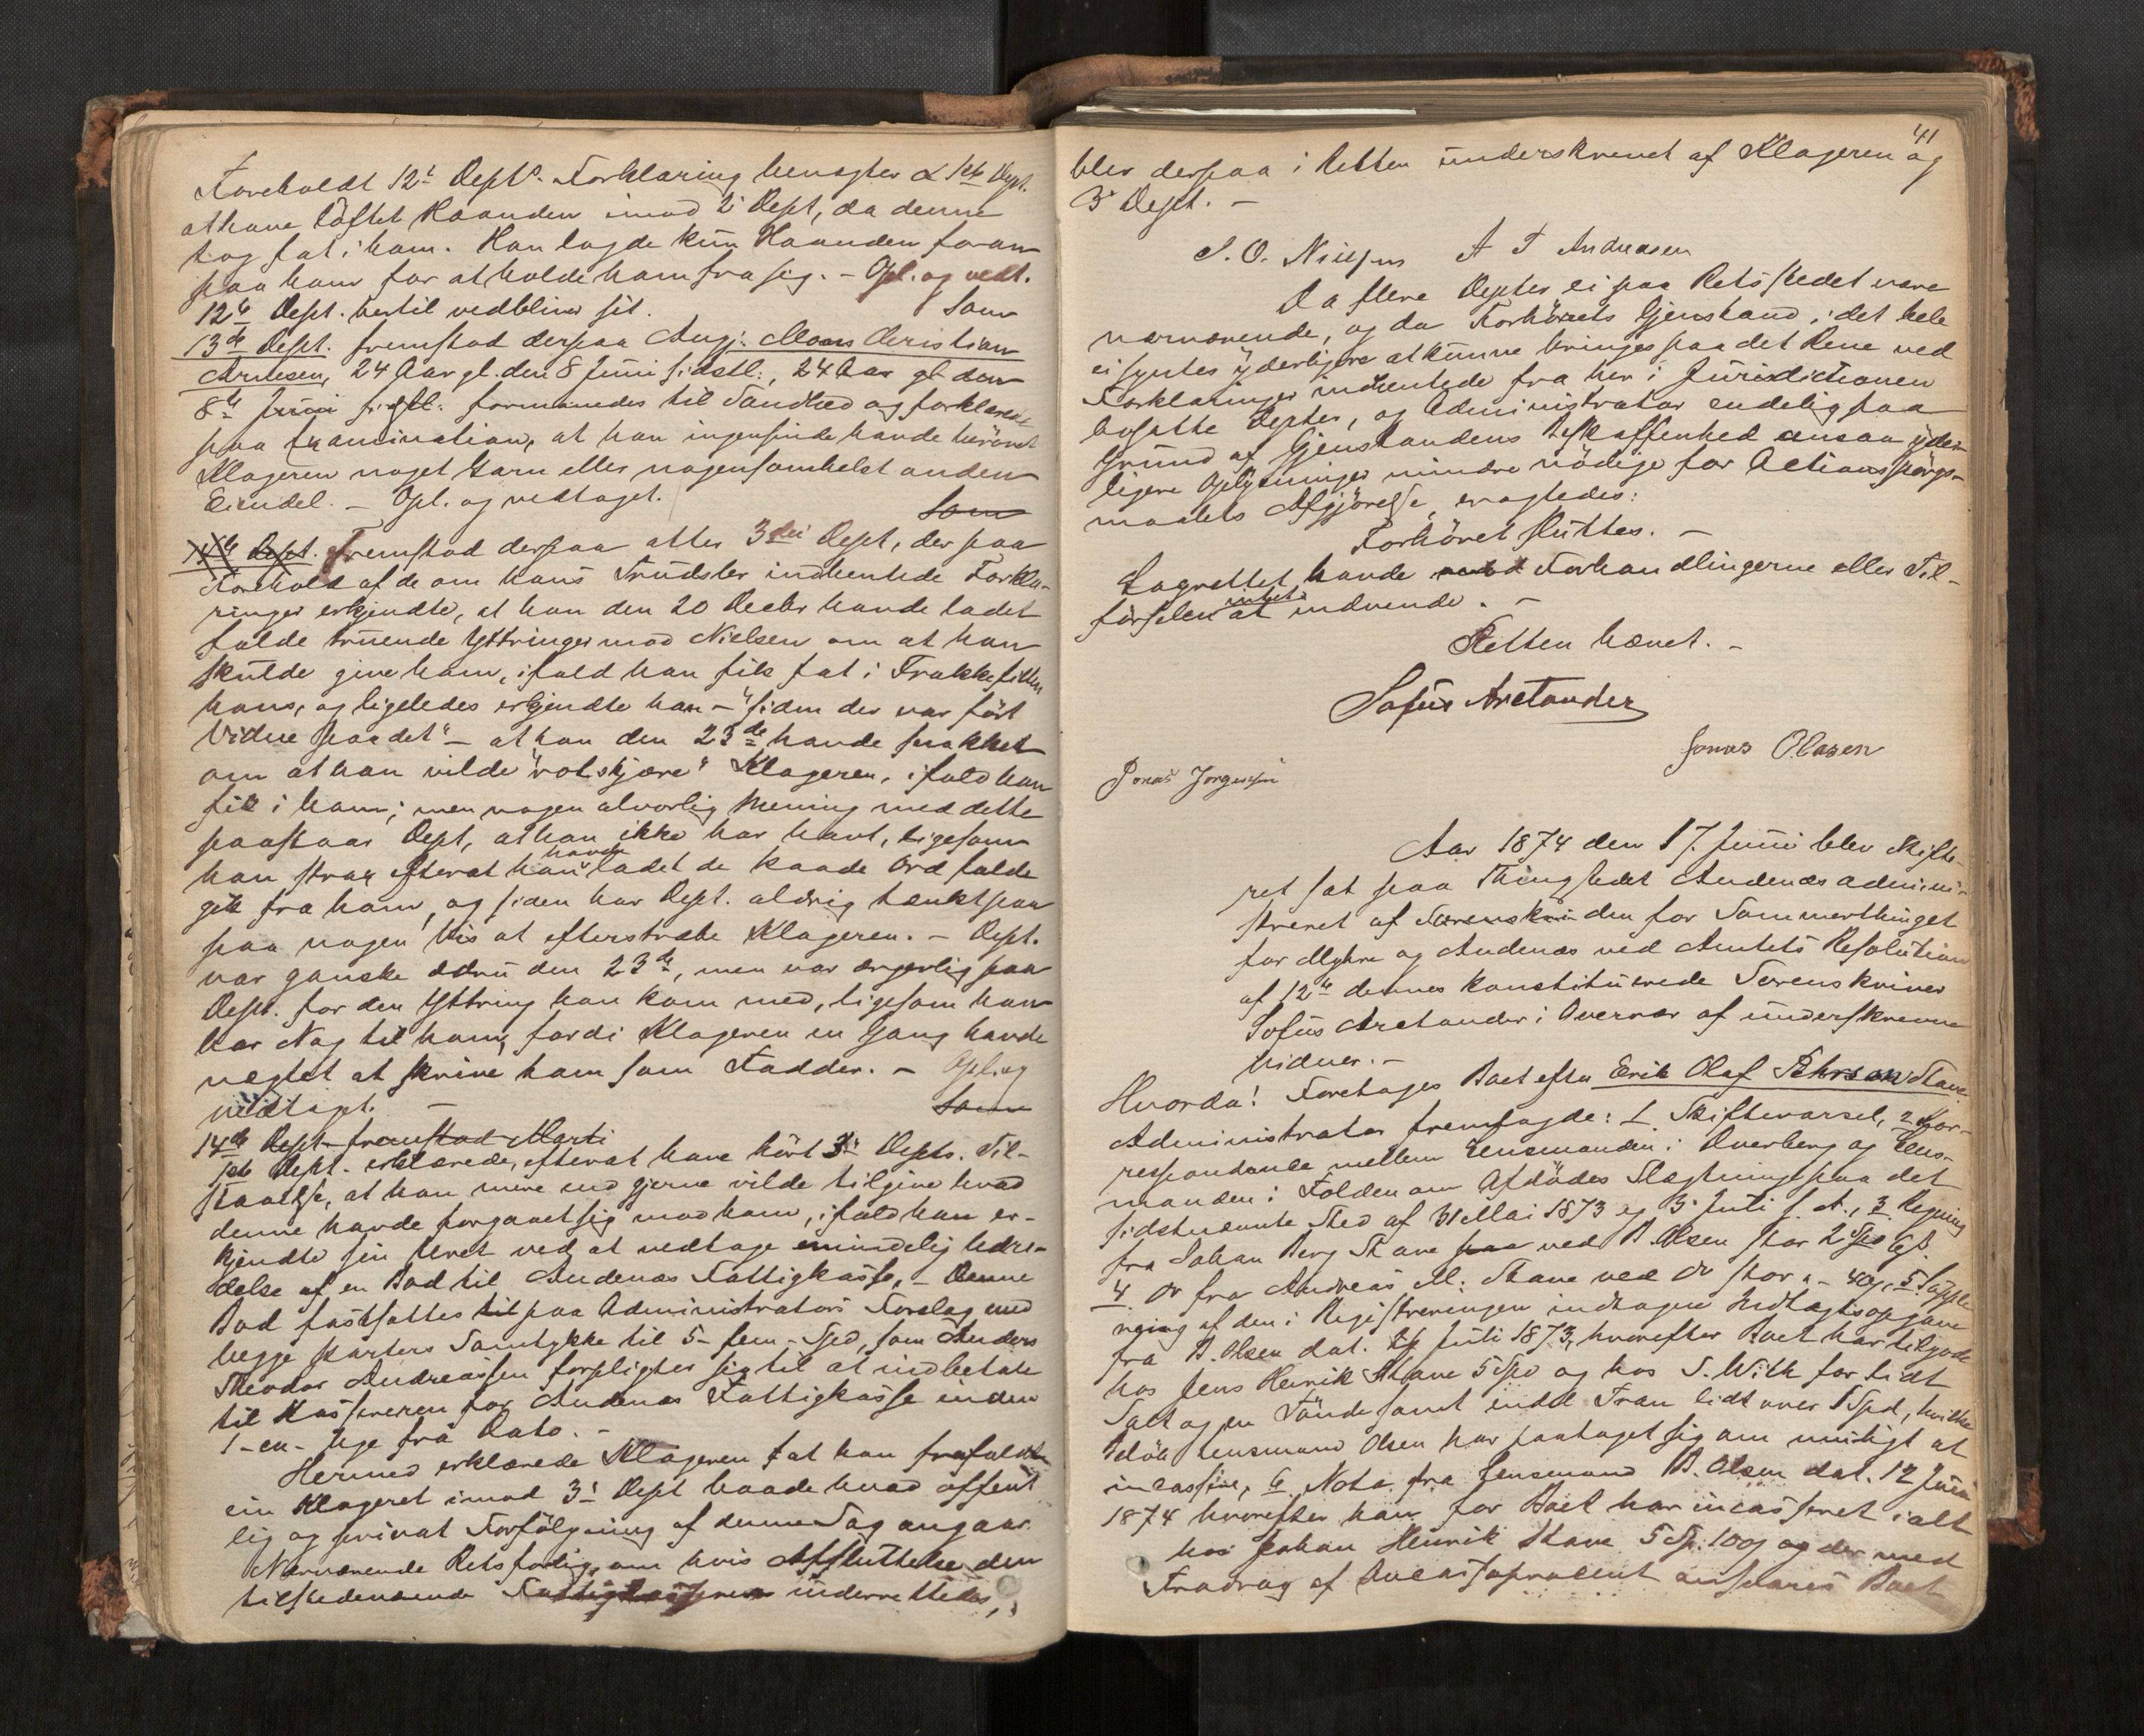 Foreholdt 12te Deptes Forklaring benegter 1ste Dept.
at have løftet Haanden imod 2den Dept, da denne
tog fat i ham. Han lagde kun Haanden foran
paa ham for at holde ham fra sig. – Opl. og vedt.
12te Dept. hertil vedbliver sit. Som
13de Dept. fremstod derpaa Angj: Moans Christian
Arntesen, 24 Aar gl. den 8 Juni sidstl:, 24 Aar gl den
8de Juni sidstl: formanedes til Sandhed og forklarede
paa Examination, at han ingensinde havde berøvet
Klageren noget Garn eller nogensomhelst anden
Eiendel. – Opl. og vedtaget. Som
14de Dept. Fremstod derpaa atter 3die Dept, der paa
Forehold af de om hans Trudsler indhentede Forkla-
ringer erkjendte, at han den 20 Decbr havde ladet
falde truende Yttringer mod Nielsen om at han
skulde give ham, ifald han fik fat i Frakkefillen
hans, og ligeledes erkjendte han – "siden der var ført
Vidne paa det" – at han den 23de havde snakket
om at han vilde "rotskjære" Klageren, ifald han
fik i ham; men nogen alvorlig Mening med dette
paastaar Dept, at han ikke har havt, ligesom
han strax efterat han havde ladet de kaade Ord falde
gik fra ham, og siden har Dept. aldrig tænkt paa
paa nogen Vis at efterstræbe Klageren. – Dept.
var ganske ædru den 23de, men var ærgerlig paa
Dept. for den Yttring han kom med, ligesom han
har Nag til ham, fordi Klageren en Gang havde
negtet at skrive ham som Fadder. – Opl. og
vedtaget. – Som
14de Dept fremstod Marti
1ste Dept. erklærede, efterat have hørt 3die Depts. Til-
staaelse, at han mere end gjerne vilde tilgive hvad
denne havde forgaaet sig mod ham, ifald han er-
kjendte sin Uret ved at vedtage mindelig Udre-
delse af en Bod til Andenæs Fattigkasse, – Denne
Bod fastsattes til paa Administrators Forslag med
begge Parters Samtykke til 5 – fem – Spd, som Anders
Theodor Andreassen forpligter sig til at indbetale
til Kassereren for Andenæs Fattigkasse inden
1 – en – Uge fra Dato. –
Hermed erklærede Klageren at han frafaldt
sin Klageret imod 3die Dept baade hvad offent
lig og privat Forfølgning af denne Sag angaar.
Nærværende Retsforlig, om hvis Afsluttelse den
tilstedeværende Fattigkasserer underrettedes,
41
blev derpaa i Retten underskrevet af Klageren og
3die Dept. –
S. O. Nielsen A T Andreasen
Da flere Depter ei paa Retsstedet vare
nærværende, og da Forhørets Gjenstand i det hele
ei syntes yderligere at kunne bringes paa det Rene ved
Forklaringer indhentede fra her i Jurisdictionen
bosatte Depter, og Administrator endelig paa
Grund af Gjenstandens Beskaffenhed ansaa yder-
ligere Oplysninger mindre nødige for Actionsspørgs-
maalets Afgjørelse, eragtedes:
Forhøret sluttes. –
Lagrettet havde mod Forhandlingerne eller Til-
førselen intet at indvende. –
Retten hævet. –
Sofus Arctander
Jonas Olasen
Jonas Jørgensen
Aar 1874 den 17. Juni blev Skifte-
ret sat paa Thingstedet Andenæs admini-
streret af Sorenskri den for Sommerthinget
for Myhre og Andenæs ved Amtets Resolution
af 12te dennes konstituerede Sorenskriver
Sofus Arctander i Overvær af underskrevne
Vidner. –
Hvorda: Foretoges Boet efter Erik Olaf Pehrson Stave
Administrator fremlagde: 1. Skiftevarsel, 2 Kor-
respondance mellem Lensmanden i Dverberg og Lens-
manden i Folden om Afdødes Slægtninge paa det
sidstnævnte Sted af 31 Mai 1873 og 3die Juli s. A., 3 Regning
fra Johan Berg Stave paa ved B. Olsen stor 2 Spd 6ß.
4 Do fra Andreas M: Stave ved Do stor " – 40ß, 5 Supple
ring af den i Registreringen indtagne Indtægtsopgave
fra B. Olsen dat. 24 Juli 1873, hvorefter Boet har tilgode
hos Jens Henrik Stave 5 Spd og hos S. With for lidt
Salt og en Tønde samt endel Tran lidt over 1 Spd, hvilke
Beløb Lensmand Olsen har paataget sig om muligt at
incassere, 6 Nota fra Lensmand B. Olsen dat. 12 Juni
1874 hvorefter han for Boet har incasseret ialt
hos Johan Henrik Stave 5 Sp: 100ß og der med
Fradrag af Incassoprocent ansvares Boet